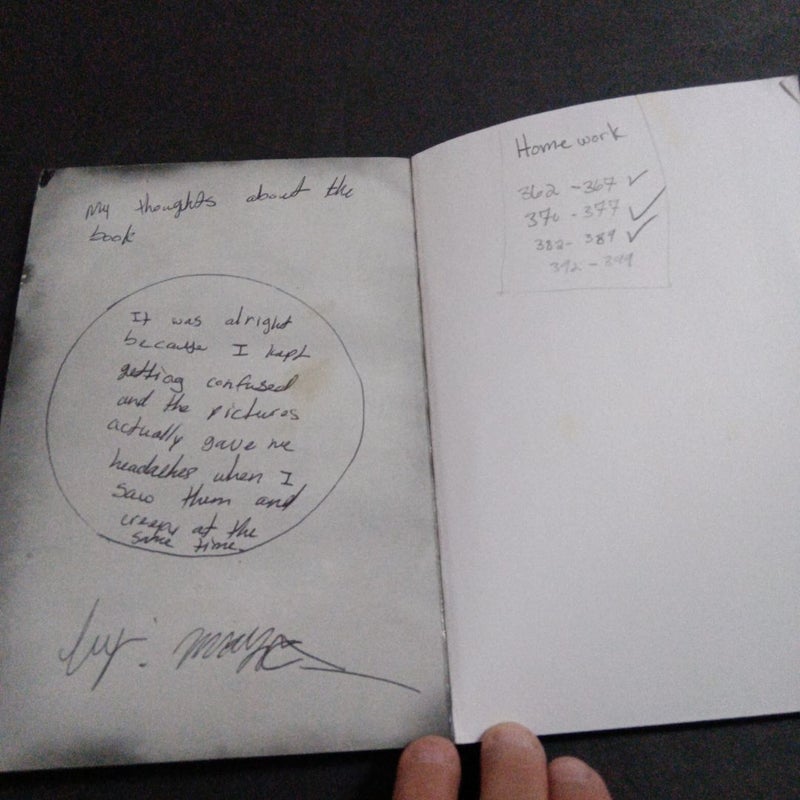 My thoughts about the
book
It was alright
because I kept
getting confused
and the pictures
actually gave me
headaches when I
saw them and
creepy at the
same time.
by:
Home work
362 - 367 ✓
370 - 377 ✓
382- 389 ✓
392 - 399